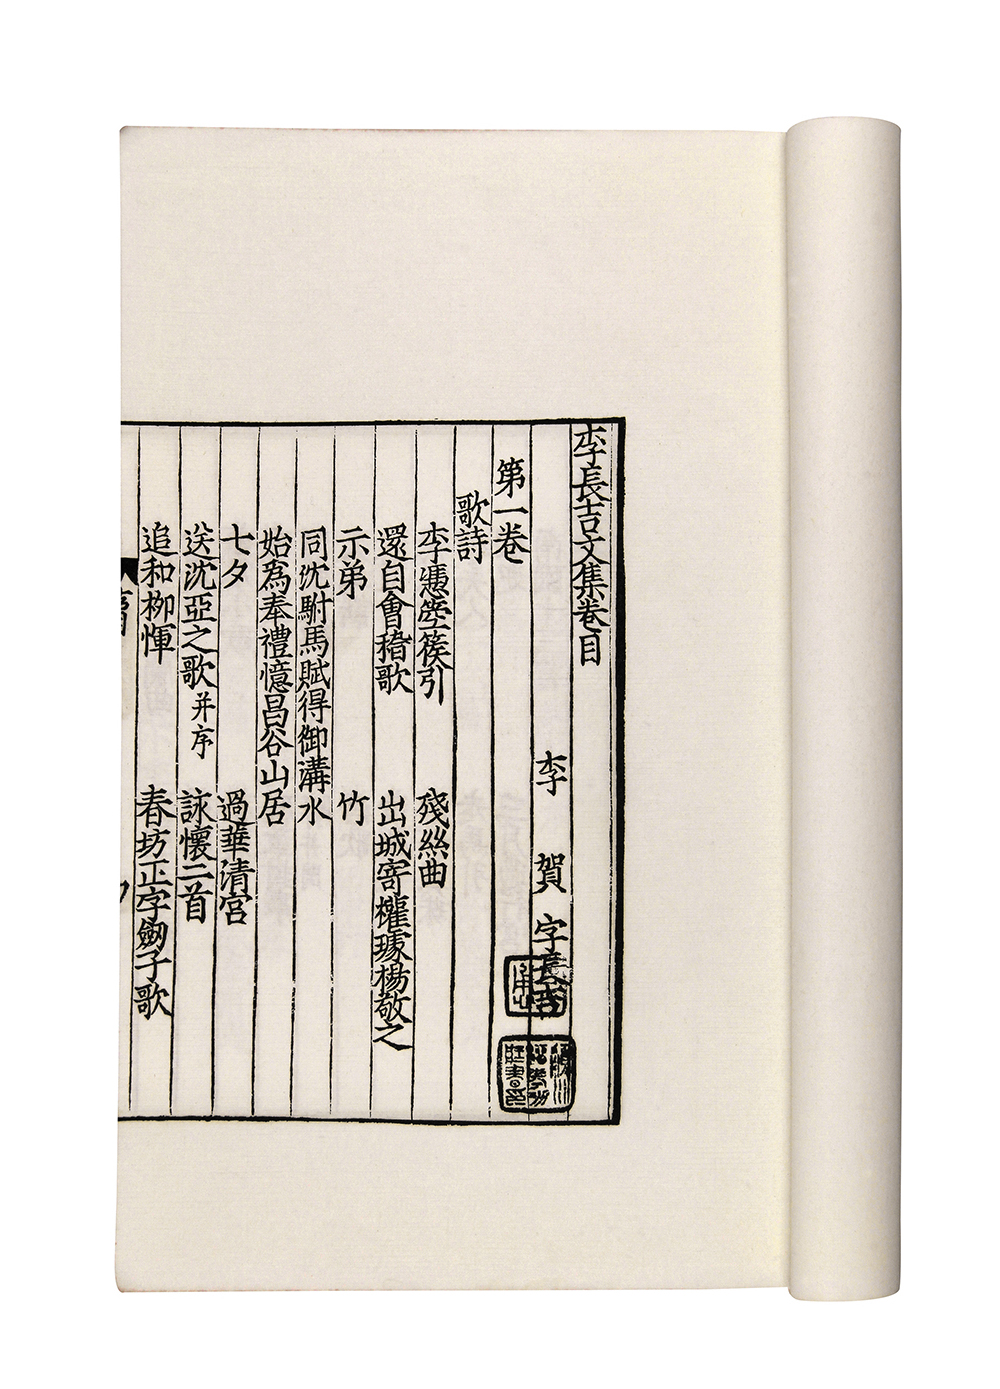 李長吉文集卷目
李賀 字長吉
第一卷
歌詩
李憑箜篌引 殘絲曲
還自會稽歌 出城寄權璩楊敬之
示弟 竹
同沈駙馬賦得御溝水
始為奉禮憶昌谷山居
七夕 過華清宮
送沈亞之歌并序 詠懷二首
追和柳惲 春坊正字劒子歌